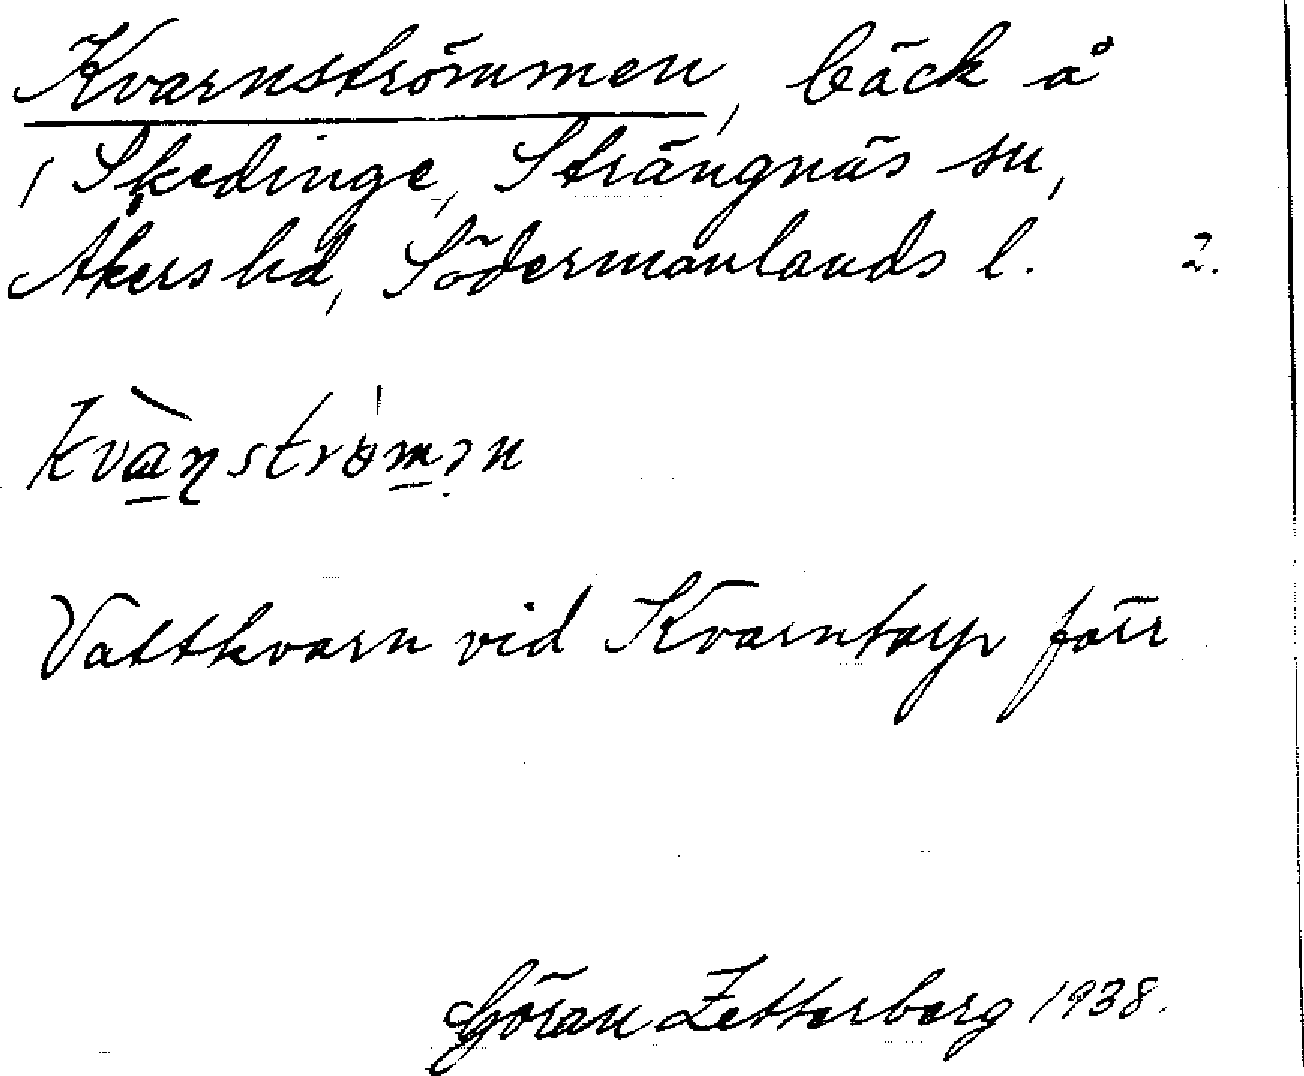 Kvarnströmmen, bäck å
/ Skedinge, Strängnäs sn,
Åkers hd, Södermanlands l. 2.
kvànstrǿmən
Vattkvarn vid Kvarntorp förr
Göran Zetterberg 1938.